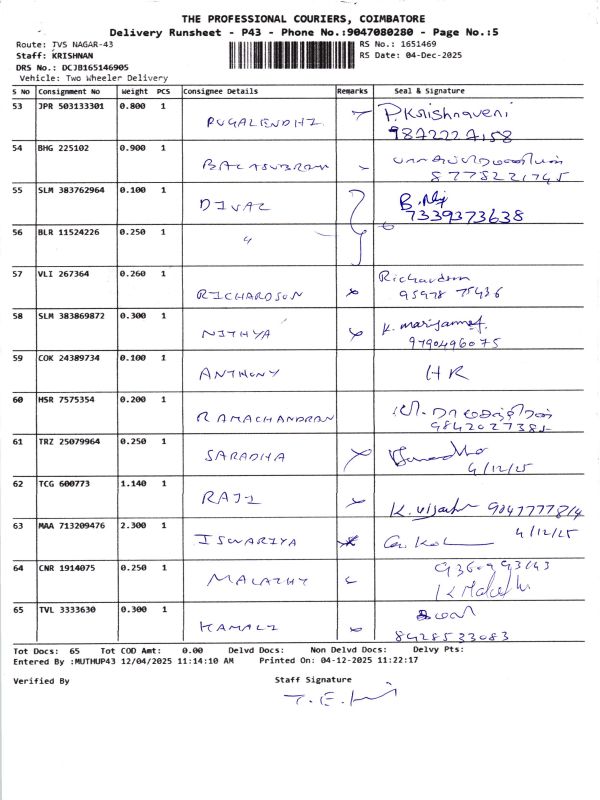 THE PROFESSIONAL COURIERS, COIMBATORE
Delivery Runsheet - P43 - Phone No.:9047080280 - Page No.:5
Route: TVS NAGAR-43 RS No.: 1651469
Staff: KRISHNAN RS Date: 04-Dec-2025
DRS No.: DCJB165146905
Vehicle: Two Wheeler Delivery
S No Consignment No Weight PCS Consignee Details Remarks Seal & Signature
53 JPR 503133301 0.800 1 PUGALENDHI P.Krishnaveni
9842227158
54 BHG 225102 0.900 1 BALASUBRAM
8778221745
55 SLM 383762964 0.100 1 DIVAL
7339373638
56 BLR 11524226 0.250 1 "
57 VLI 267364 0.260 1 RICHARDSON Richardson
95978 75436
58 SLM 383869872 0.300 1 NITHYA K. mariyammal
9790496075
59 COK 24389734 0.100 1 ANTHONY HR
60 HSR 7575354 0.200 1 RAMACHANDRAN
9842027385
61 TRZ 25079964 0.250 1 SARADHA Saradha
4/12/25
62 TCG 600773 1.140 1 RAJI K. vijay 9047777814
63 MAA 713209476 2.300 1 ISWARIYA 4/12/25
64 CNR 1914075 0.250 1 MALATHY
K Malathi
65 TVL 3333630 0.300 1 KAMALI கமலி
8428533083
Tot Docs: 65 Tot COD Amt: 0.00 Delvd Docs: Non Delvd Docs: Delvy Pts:
Entered By :MUTHUP43 12/04/2025 11:14:10 AM Printed On: 04-12-2025 11:22:17
Verified By Staff Signature